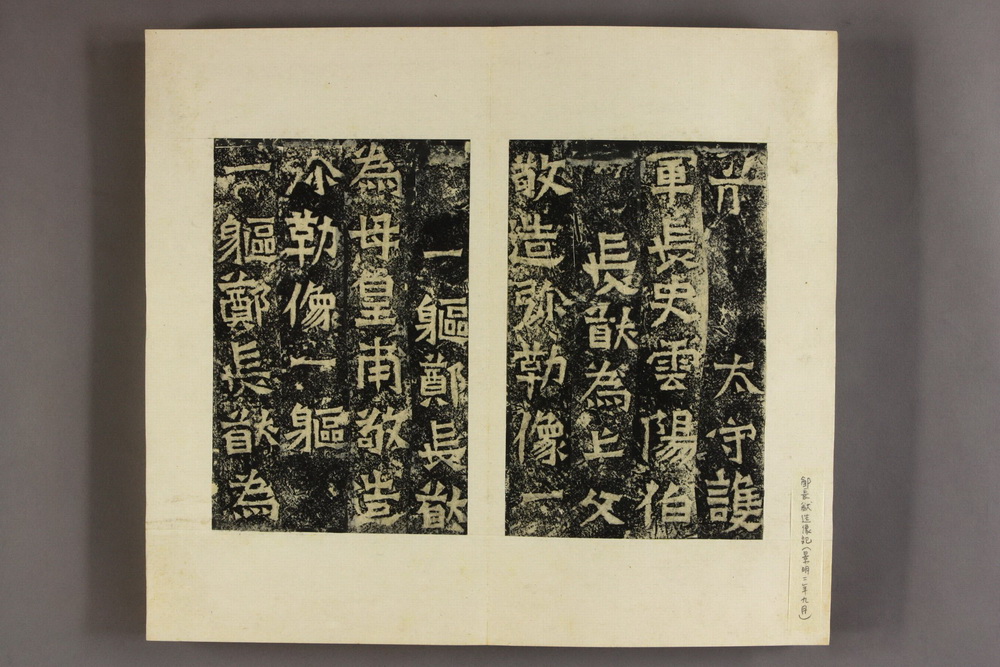 太守護
軍長史雲陽伯
長猷為亡父
敬造弥勒像一
一軀鄭長猷
為母皇甫敬造
弥勒像一軀
一軀鄭長猷為
鄭長猷造像記(景明二年九月)